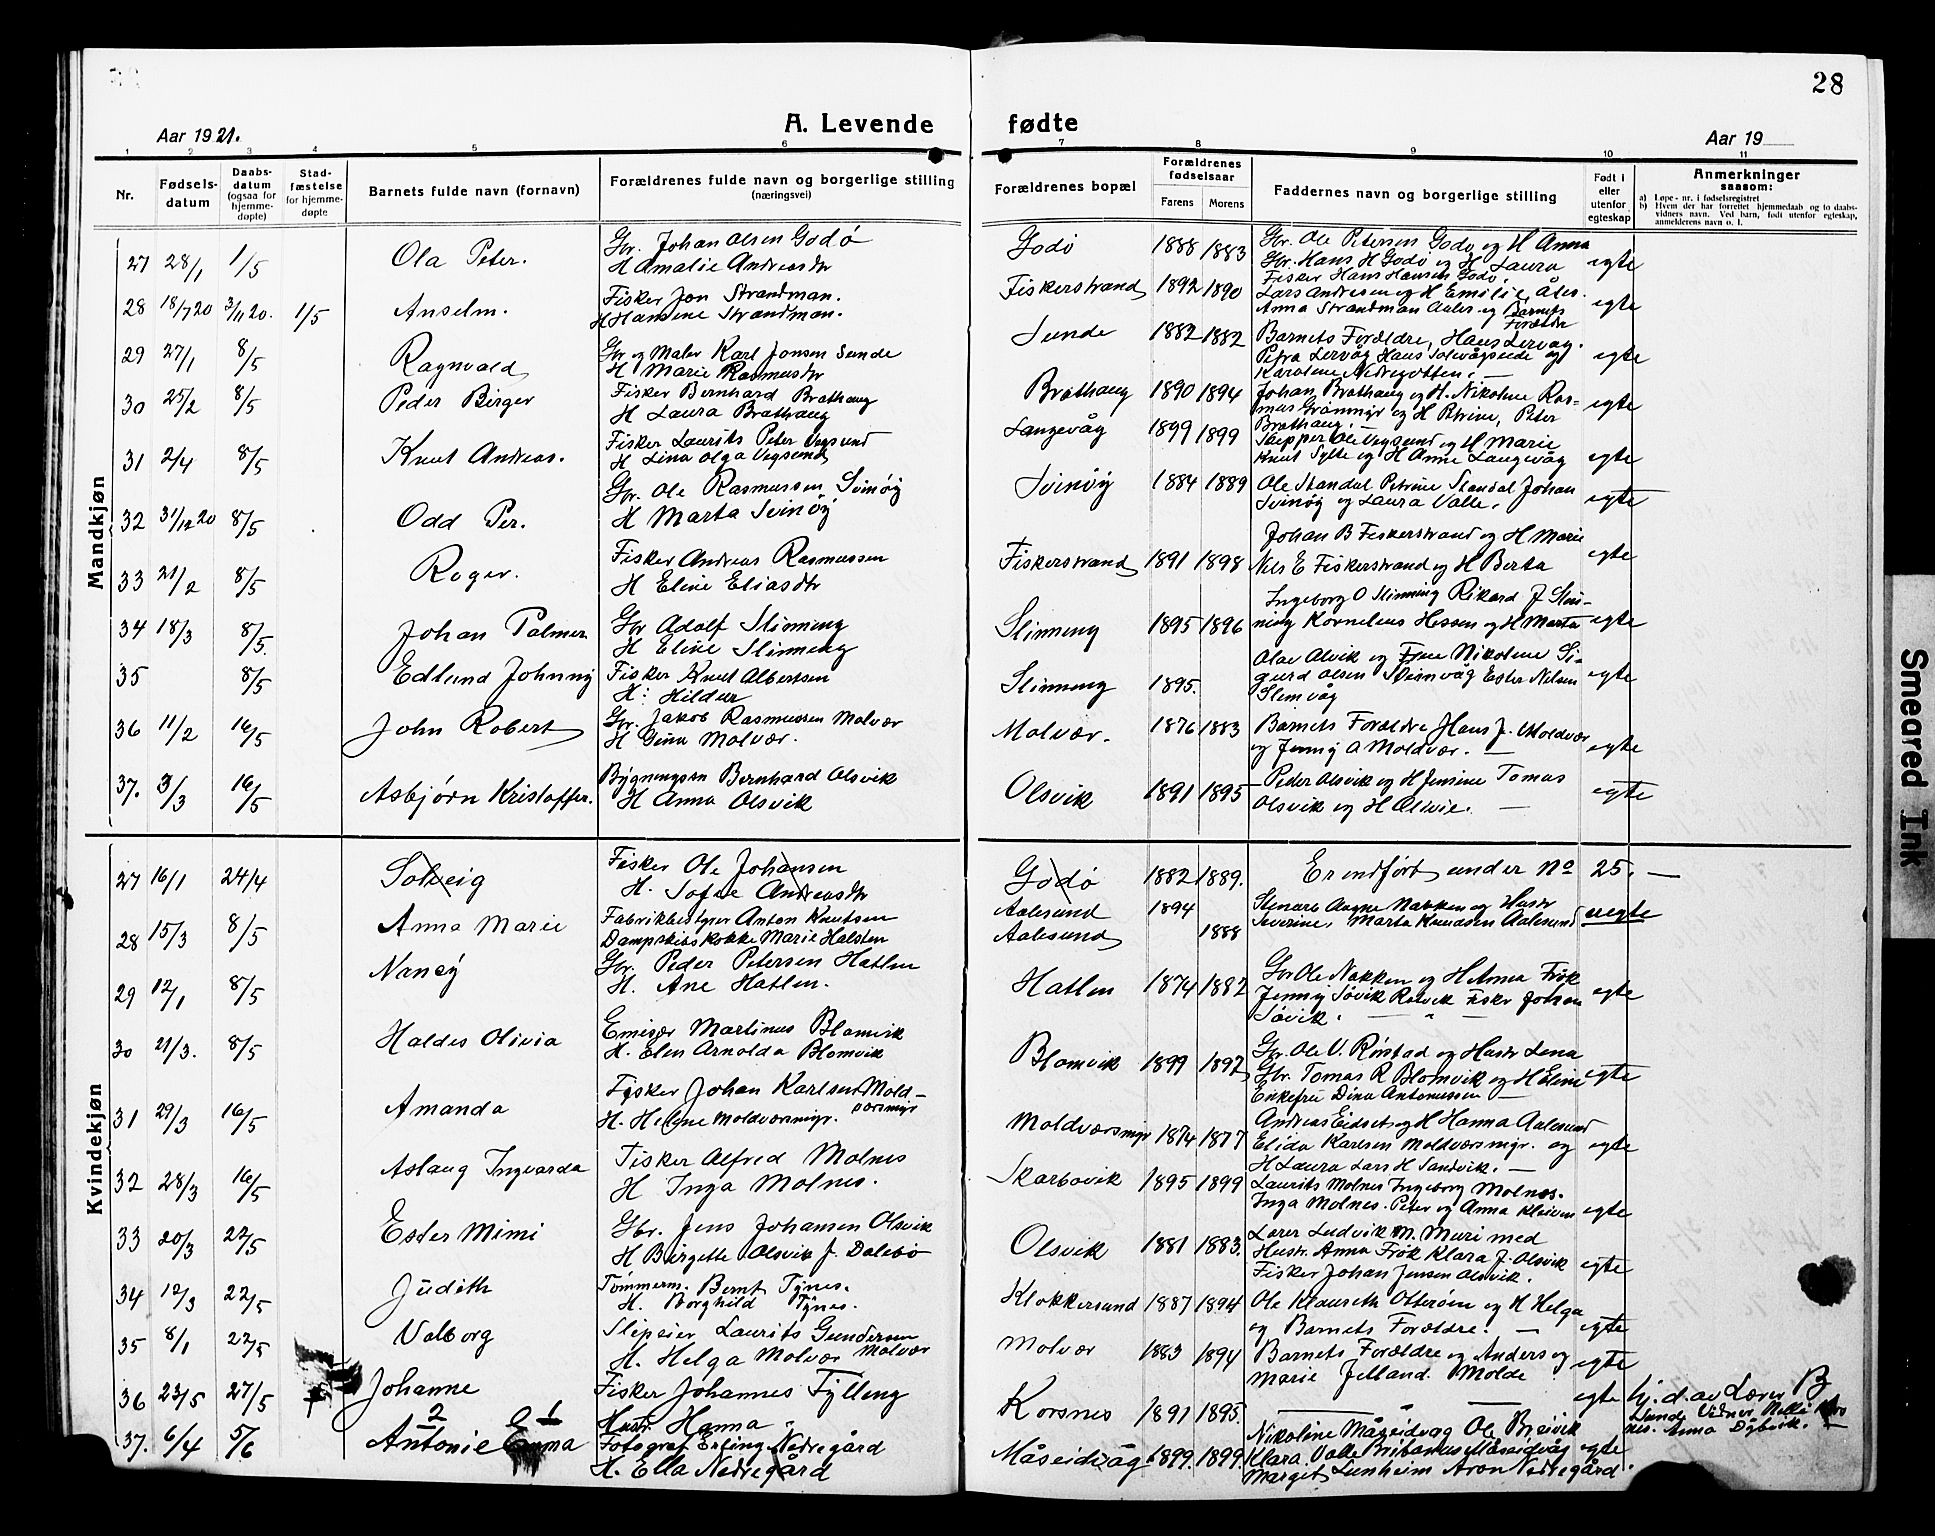 28
Aar 1921.
A. Levende
fødte
Aar 19
1 2 3 4 5 6 7 8 9 10 11
Nr.
Fødsels-
datum
Daabs-
datum
(ogsaa for
hjemme-
døpte)
Stad-
fæstelse
for hjemme-
døpte
Barnets fulde navn (fornavn)
Forældrenes fulde navn og borgerlige stilling
(næringsvei)
Forældrenes bopæl
Forældrenes
fødselsaar
Farens
Morens
Faddernes navn og borgerlige stilling
Født i
eller
utenfor
egteskap
Anmerkninger
saasom:
a) Løpe-nr. i fødselsregistret
b) Hvem der har forrettet hjemmedaab og to daabs-
vidners navn. Ved barn, født utenfor egteskap,
anmelderens navn o. l.
Mandkjøn
27 28/1 1/5 Ola Peter. Gbr. Johan Olsen Godø
H Amalie Andreasdtr
Godö 1888 1883 Gbr. Ole Petersen Godø og H Anna
Gbr. Hans H Godö og H Laura
Fisker Hans Hansen Godö
egte
28 18/7 20 3/11 20. 1/5 Anselm. Fisker Jon Strandman.
H Hansine Strandman.
Fiskerstrand 1892 1890 Lars Andresen og H Emilie,
Anna Strandman Aales og Barnets
Forældre
egte
29 27/1 8/5 Ragnvald Gbr og Maler Karl Jonsen Sunde
H Marie Rasmusdtr
Sunde 1882 1882 Barnets Forældre, Hans Lervåg.
Petra Lervåg Hans Solevågseide og
Karoline Nedregotten.
egte
30 25/2 8/5 Peder Birger Fisker Bernhard Brathaug
H Laura Brathaug
Brathaug 1890 1894 Johan Brathaug og H. Nikoline Ras-
mus Grönmyr og H Petrine, Peter
Brathaug.
egte
31 2/4 8/5 Knut Andreas. Fisker Laurits Peter Vegsund
H Lina Olga Vegsund
Langevåg 1899 1899 Skipper Ole Vegsund og H Marie
Knut Sylte og H Anne Langevåg
egte
32 31/12 20 8/5 Odd Per. Gbr. Ole Rasmussen Svinöy
H Marta Svinöy
Svinöy 1884 1889 Ole Standal Petrine Standal Johan
Svinöy og Laura Valle.
egte
33 21/2 8/5 Roger. Fisker Andreas Rasmussen
H Eline Eliasdtr
Fiskerstrand 1891 1898 Johan B Fiskerstrand og H Marie
Nils E Fiskerstrand og H Berta
egte
34 18/3 8/5. Johan Palmer. Gbr Adolf Slinning
H Eline Slinning
Slinning 1895 1896 Ingeborg O Slinning Rikard J Slin-
ning Kornelius Hessen og H Marta
egte
35 8/5 Edlund Johnny Fisker Knut Albertsen
H: Hildur
Slinning 1895. Olav Alvik og Frue Nikoline Si-
gurd Olsen Ester Nilsen
Slinvåg
egte
36 11/2 16/5 John Robert Gbr. Jakob Rasmussen Molvær
H Gina Molvær.
Molvær. 1876 1883 Barnets Forældre Hans J. Moldvær
og Jenny A Moldvær.
egte
37. 3/3 16/5 Asbjørn Kristoffer. Bygningssn Bernhard Olsvik
H Anna Olsvik
Olsvik 1891 1895 Peder Olsvik og H Jensine Tomas
Olsvik og H
egte
Kvindekjøn
27 16/1 24/4 Solveig Fisker Ole Johansen
H. Sofie Andreasdtr
Godø 1882 1889. Er indført under No 25.
28 15/3 8/5 Anna Marie Fabrikbestyrer Anton Knutsen
Dampskibskokke Marie Halsten
Aalesund 1894
Aalesund 1888
Aagne Nakken og Hustr
Severine, Marta Knudsen Aalesund
uegte
29 12/1 8/5 Nancy Gbr. Peder Petersen Hatlen
H. Ane Hatlen.
Hatlen 1874 1882 Gbr Ole Nakken og H Anna Frøk
Jenny Søvik Fisker Johan
Søvik.
egte
30 21/3. 8/5 Haldis Olivia Emisær Martinus Blomvik
H. Elen Arnolda Blomvik
Blomvik 1899 1897 Gbr. Ole V. Rørstad og Hustr Lina
Gbr. Tomas R Blomvik og H Eline
Enkefru Dina Antonussen
egte
31 29/3 16/5 Amanda Fisker Johan Karlsen Mold-
værsmyr
H. Helene Moldværsmyr.
Moldværsmyr 1874 1877 Andreas Eidset og H Hanna Aalesund
Elida Karlsen Moldværsmyr. og
H Laura Lars H Sandvik.
egte
32 28/3 16/5 Aslaug Ingvarda Fisker Alfred Molnes
H Inga Molnes.
Skarbøvik 1895 1899 Laurits Molnes Ingeborg Molnes.
Inga Molnes. Peter og Anna Kleiven
egte
33 20/3 22/5 Ester Mimi Gbr. Jens Johansen Olsvik
H Birgette Olsvik f. Dalebø
Olsvik 1881 1883. Lærer Ludvik M. Muri med
Hustr. Anna Frøk Klara J. Olsvik
Fisker Johan Jensen Olsvik.
egte
34 12/3 22/5 Judith Tømmerm. Bernt Tynes.
H. Borghild Tynes.
Klokkersund 1887 1894 Ole Klauseth Otterøen og H Helga
og Barnets Forældre.
egte
35 8/1 22/5 Valborg Slipeier Laurits Gundersen
Molvær
H. Helga Molvær
Molvær 1883 1894 Barnets Forældre og Anders og
Marie Jelland. Molde
egte
36 23/5 27/5 Johanne Fisker Johannes Fylling
Hustr Hanna "
Korsnes 1891 1895. egte
hj. d. av Lærer B
Sunde Vidner Korsnes. Anna Dybvik.
37. 6/4 5/6 Antonie Emma
2 1
Fotograf Erling Nedregård
H. Ella Nedregård
Måseidvåg 1899. 1899. Nikoline Måseidvåg Ole Breivik
Klara Valle Måseidvåg
Margit Lunheim Aron Nedregård.
egte
Smeared Ink